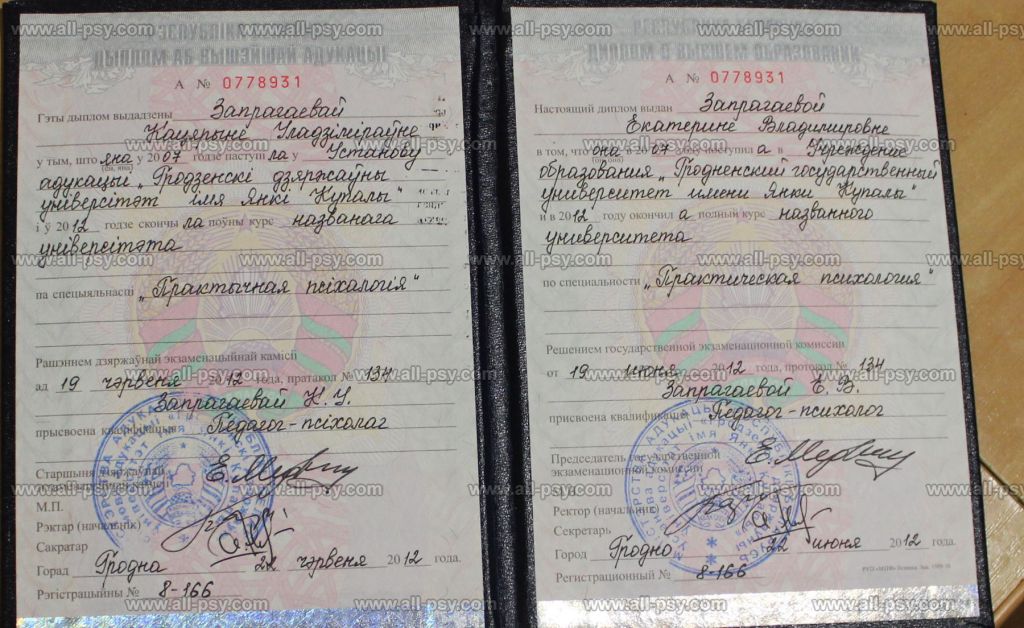 РЭСПУБЛІКА
ДЫПЛОМ АБ ВЫШЭЙШАЙ АДУКАЦЫІ
А № 0778931
Гэты дыплом выдадзены Запрагаевай
Кацярыне Уладзіміраўне
у тым, што яна у 2007 годзе паступіла у Установу
(ён, яна)
адукацыі „Гродзенскі дзяржаўны
універсітэт імя Янкі Купалы"
і ў 2012 годзе скончыла поўны курс названага
універсітэта
па спецыяльнасці „Практычная псіхалогія"
Рашэннем дзяржаўнай экзаменацыйнай камісіі
ад 19 чэрвеня 2012 года, пратакол № 134
Запрагаевай К. У.
прысвоена кваліфікацыя Педагог-псіхолаг
Старшыня дзяржаўнай
экзаменацыйнай камісіі
М.П.
Рэктар (начальнік)
Сакратар
Горад Гродна 22 чэрвеня 2012 года.
Рэгістрацыйны № 8-166
РЕСПУБЛИКА
ДИПЛОМ О ВЫСШЕМ ОБРАЗОВАНИИ
А № 0778931
Настоящий диплом выдан Запрагаевой
Екатерине Владимировне
в том, что она в 2007 году поступила в Учреждение
(он, она)
образования „Гродненский государственный
университет имени Янки Купалы"
и в 2012 году окончила полный курс названного
университета
по специальности „Практическая психология"
Решением государственной экзаменационной комиссии
от 19 июня 2012 года, протокол № 134
Запрагаевой Е. В.
присвоена квалификация Педагог-психолог
Председатель государственной
экзаменационной комиссии
М.П.
Ректор (начальник)
Секретарь
Город Гродно 22 июня 2012 года.
Регистрационный № 8-166
www.all-psy.com